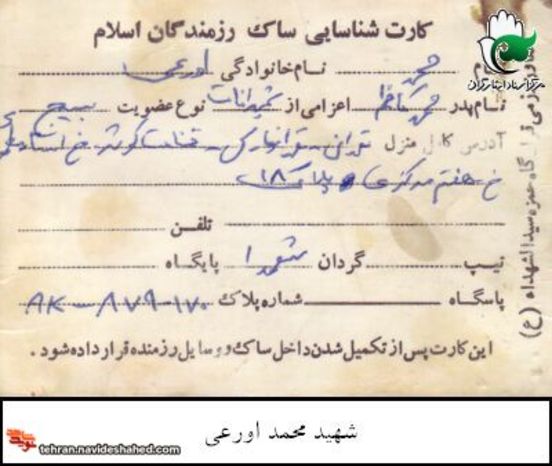 کارت شناسایی ساک رزمندگان اسلام
نام محمد نام خانوادگی اورعی
نام پدر محمد کاظم اعزامی از شمیرانات نوع عضویت بسیج
آدرس کامل منزل تهران - تهرانپارس - خ استاد
خ هفتم مرکزی پلاک ۱۸
تلفن
تیپ گردان شهدا پایگاه
پاسگاه شماره پلاک AK-۸۷۹-۱۷۰
این کارت پس از تکمیل شدن داخل ساک و وسایل رزمنده قرار داده شود.
قرارگاه حمزه سیدالشهداء (ع)
مرکز اسناد ایثارگران
شهید محمد اورعی
نوید شاهد
tehran.navideshahed.com